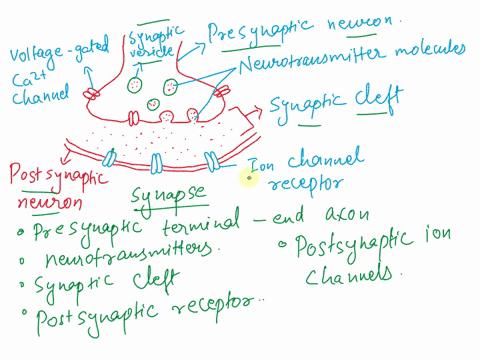 Synaptic
vesicle
Presynaptic neuron.
Voltage-gated
Ca2+
Channel
Neurotransmitter molecules
Synaptic cleft
Ion channel
receptor
Postsynaptic
neuron
Synapse
• Presynaptic terminal – end axon
• neurotransmitters.
• Synaptic cleft
• Postsynaptic receptor..
• Postsynaptic ion
channels.